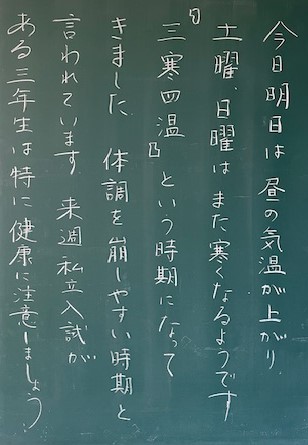 今日明日は昼の気温が上がり、
土曜、日曜はまた寒くなるようです。
「三寒四温」という時期になって
きました。体調を崩しやすい時期と
言われています。来週私立入試が
ある三年生は特に健康に注意しましょう。